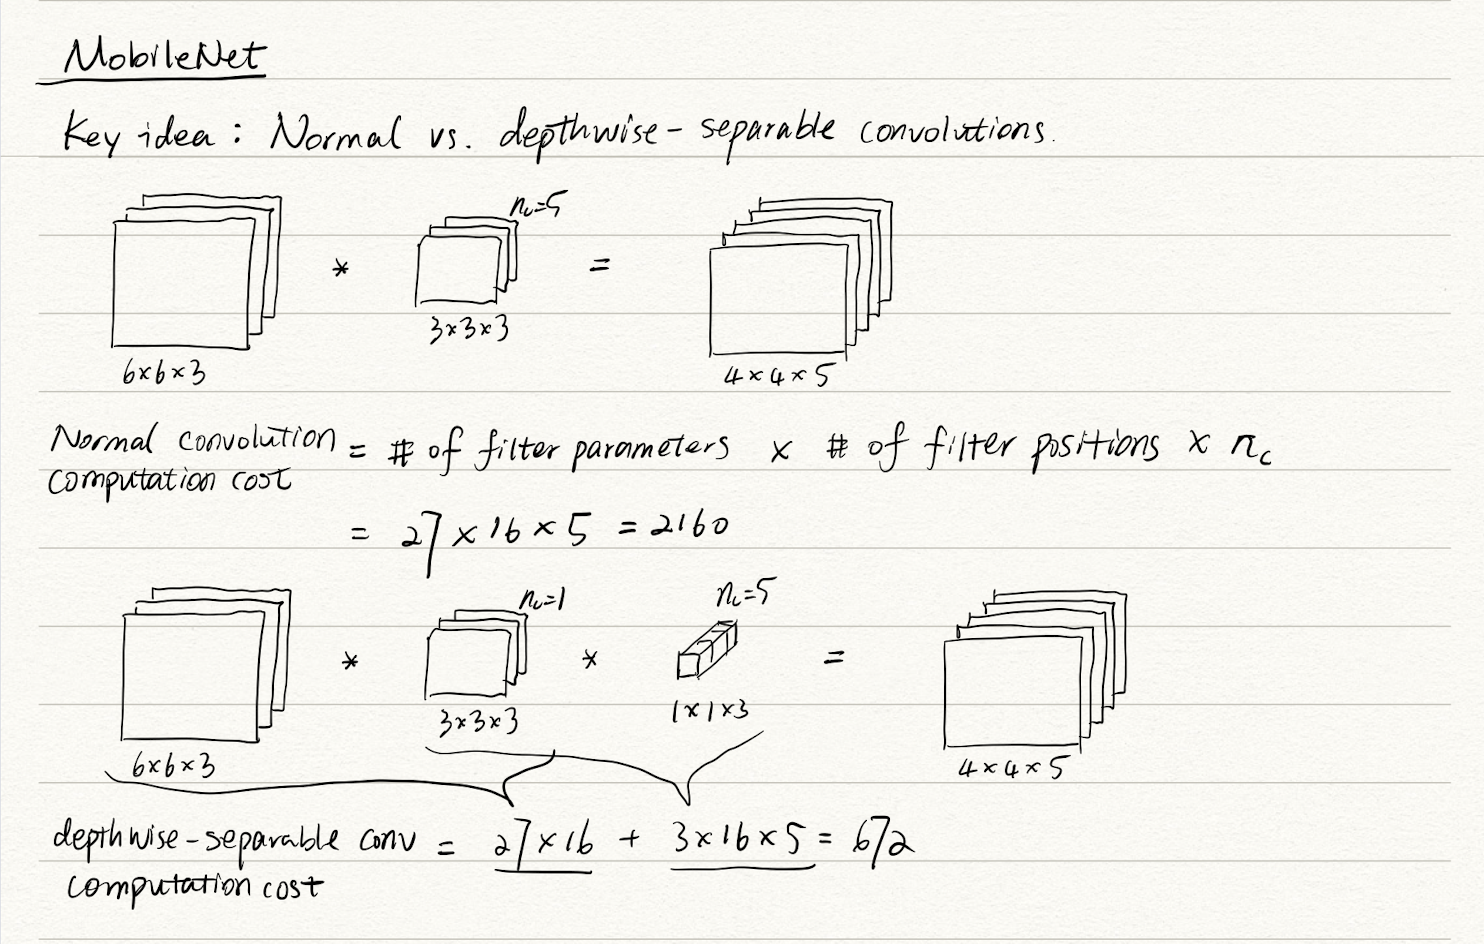 MobileNet
Key idea: Normal vs. depthwise-separable convolutions.
nc=5
*
=
3×3×3
6×6×3
4×4×5
Normal convolution computation cost = # of filter parameters × # of filter positions × nc
= 27×16×5 = 2160
nc=1
nc=5
*
*
=
3×3×3
1×1×3
6×6×3
4×4×5
depthwise-separable conv computation cost = 27×16 + 3×16×5 = 672